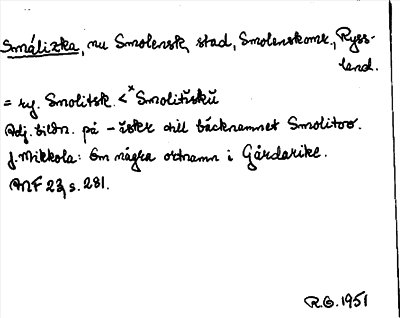 Smálizka, nu Smolensk, stad, Smolenskomr., Ryss-
land.
= ry. Smolitsk < *Smolitĭskŭ
Adj. bildn. på -ĭskŭ till bäcknamnet Smolitov.
J. Mikkola: Om några ortnamn i Gårdarike.
ANF 23, s. 281.
R.G. 1951